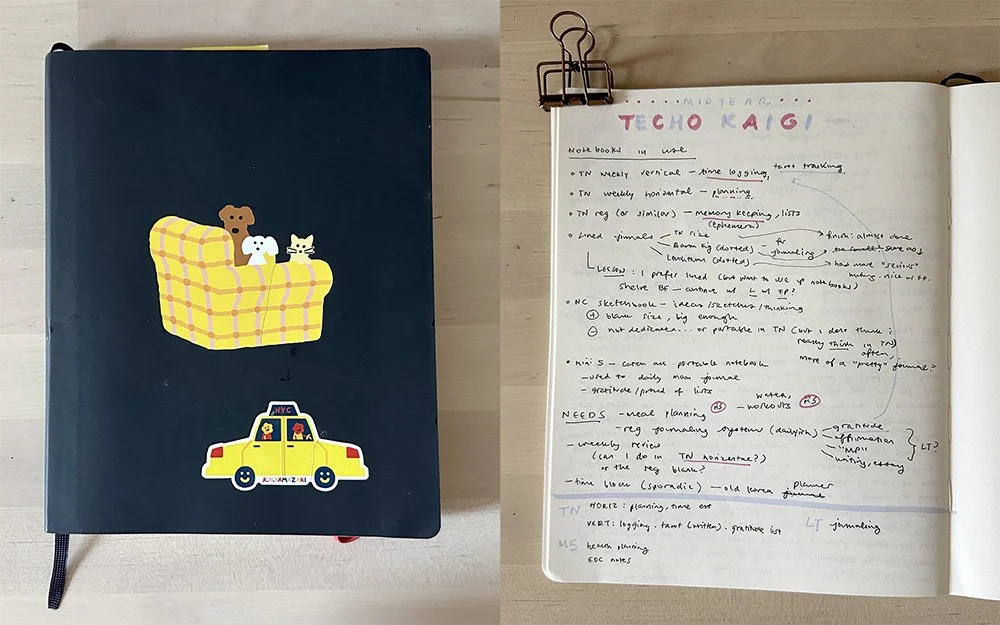 NYC
KAGYAMAZAKI
MIDYEAR
TECHO KAIGI
Notebooks in use
TN weekly vertical - time logging, tarot tracking
TN weekly horizontal - planning
TN reg (or similar) - memory keeping, lists
(ephemera)
Lined journals - TN size
Baron Fig (dotted)
Leuchtturm (dotted)
for journaling
finish: almost done
too small
had more "serious"
nice w/ FP.
LESSON: I prefer lined (but want to use up notebooks)
shelve BF - continue w/ L w/ FP?
NC sketchbook - ideas/sketches/thinking
+ blank size, big enough
- not dedicated... or portable in TN (but I don't think I
really think in TN)
often,
more of a "pretty" journal?
mini 5 - catch all portable notebook
- used to daily mom journal
- gratitude/proud of lists
NEEDS - meal planning M5 - water, workouts M5
- reg journaling system (dailyish)
gratitude
affirmation
"MP"
writing, essay
LT?
- weekly review
(can I do in TN horizontal?)
or the reg blank?
- time block (sporadic) - old Korea journal planner
TN HORIZ: planning, time est
VERT: logging. tarot (written). gratitude list
LT journaling
M5 health planning
EDC notes